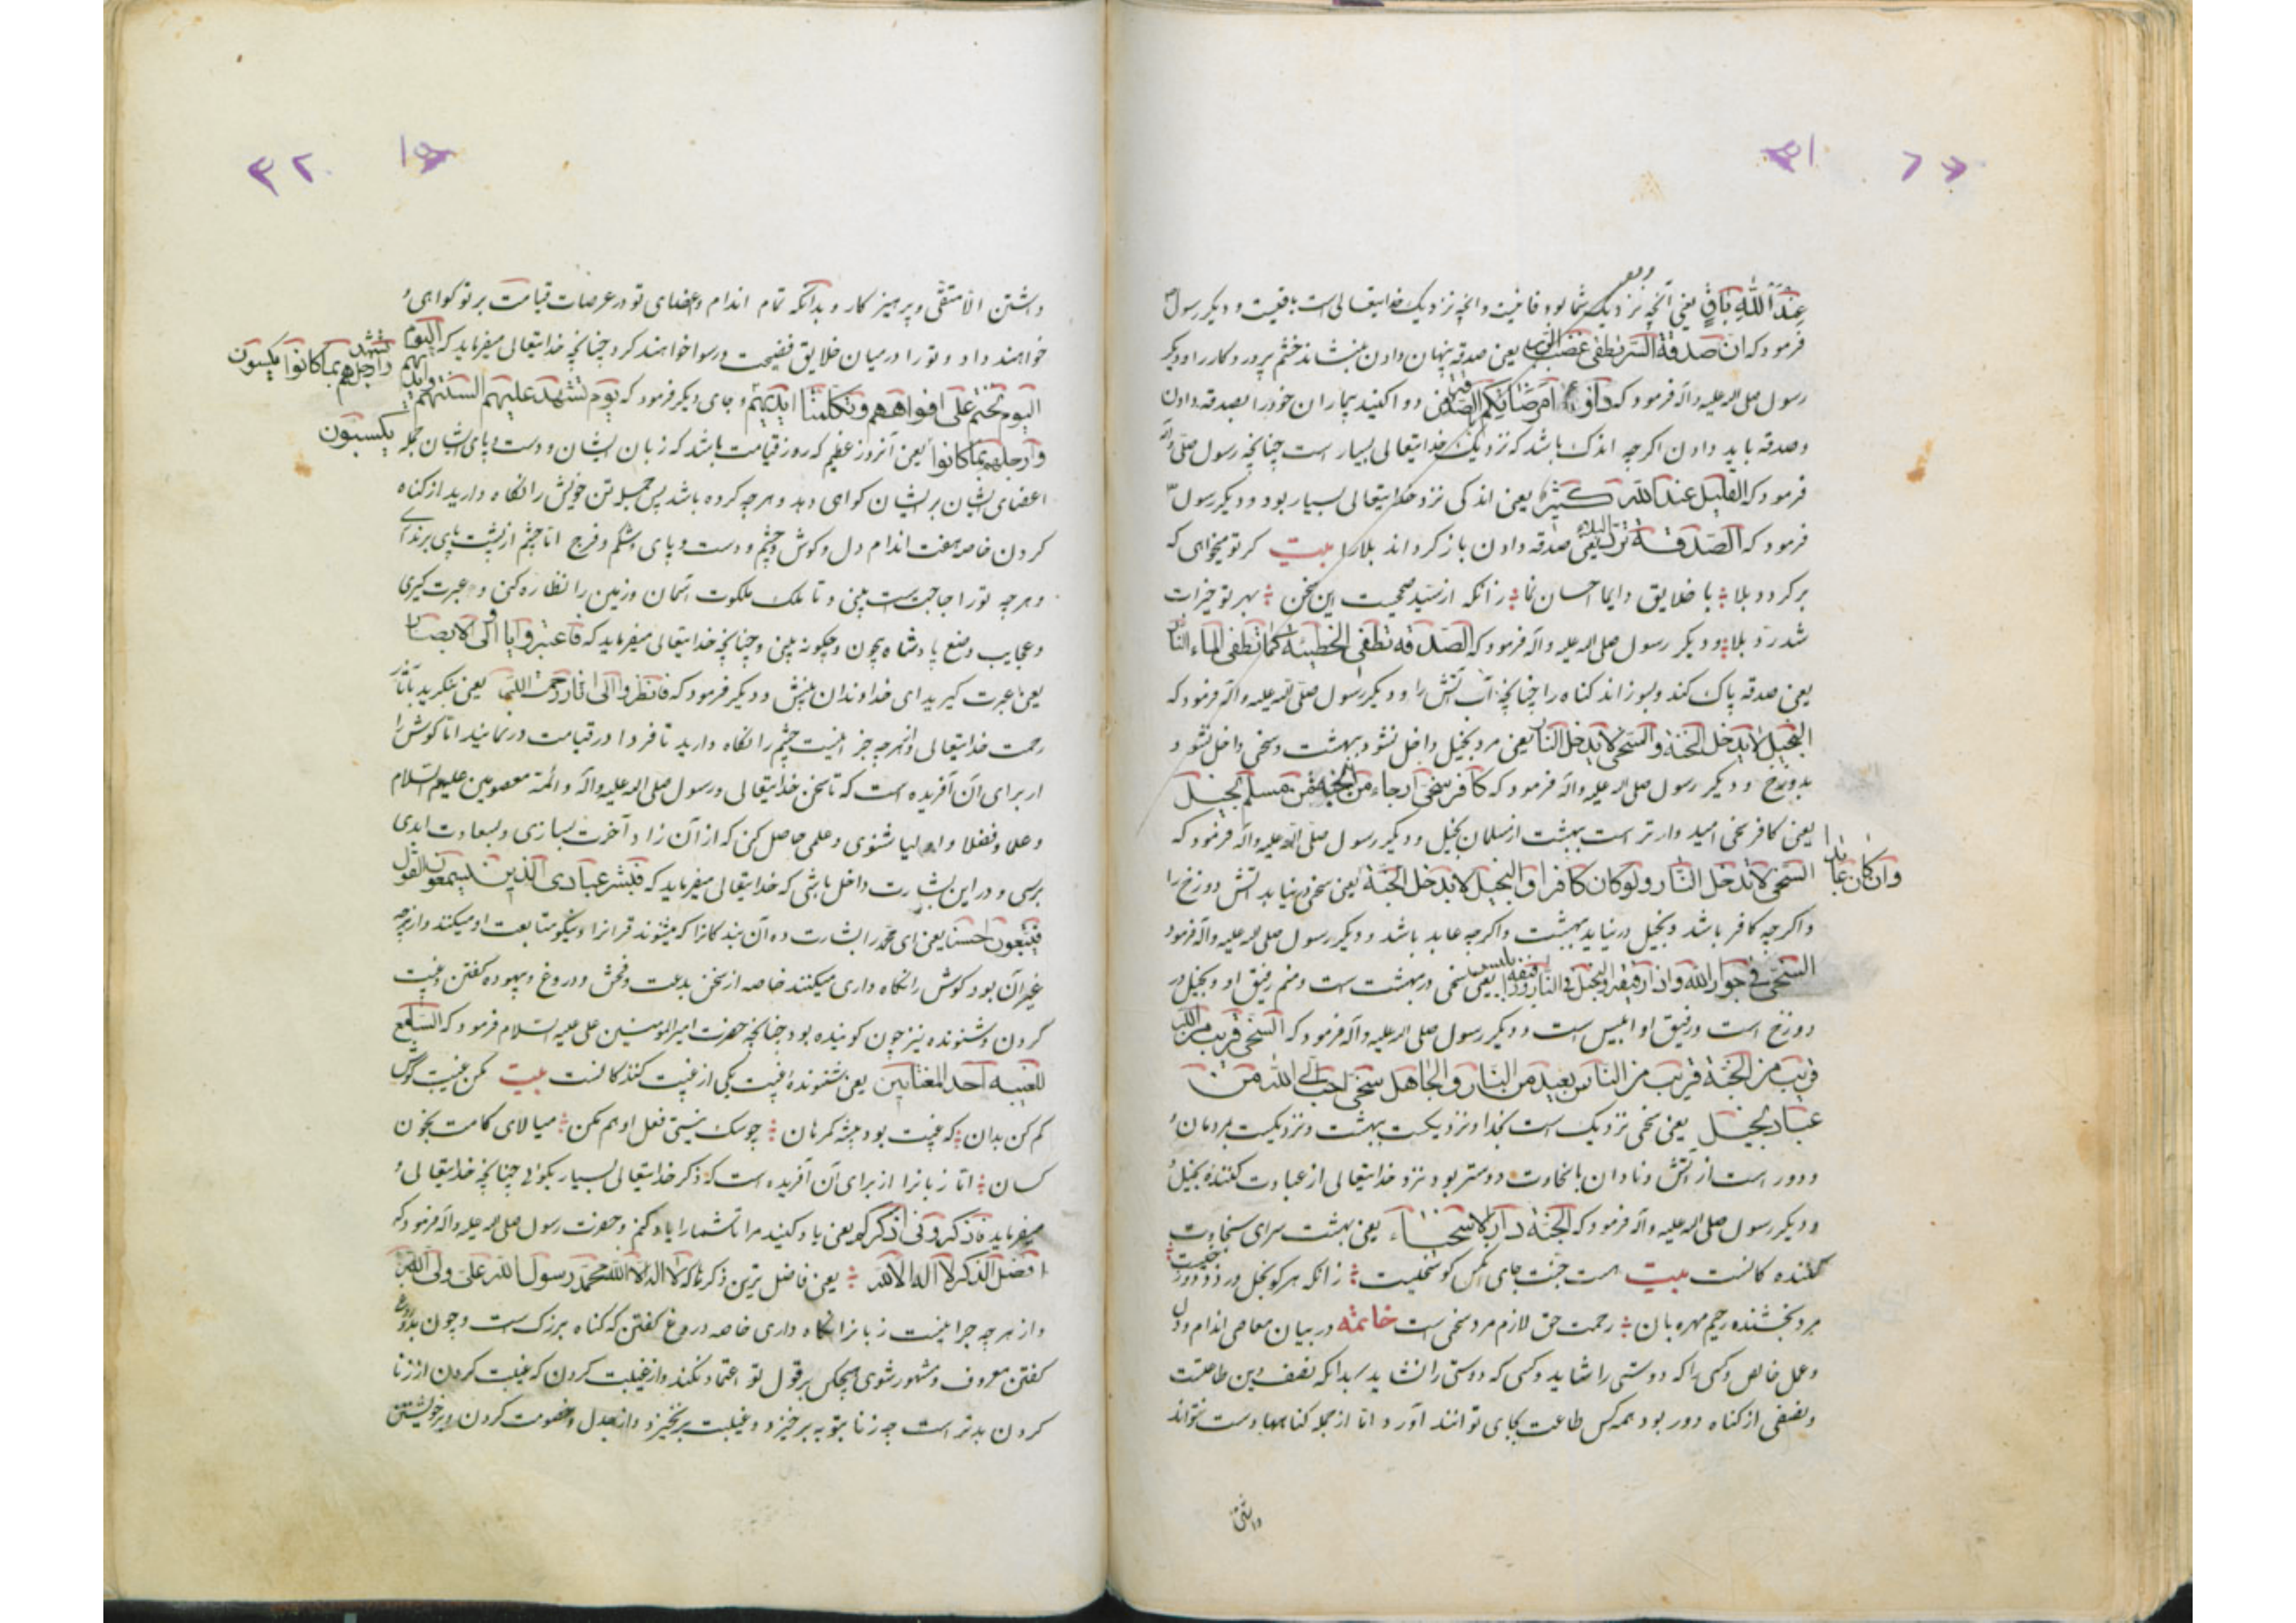 عِنْدَ اللهِ بَاقٍ یعنی آنچه نزدیک شما بود فانیست و آنچه نزدیک خدایتعالی است باقیست و دیکر رسول
فرمود که ان صدقة السر تطفی غضب الرب یعنی صدقه پنهان دادن بنشاند خشم پروردکار را و دیکر
رسول صلی الله علیه و آله فرمود که داووا امرضائکم بالصدقة دوا کنید بیماران خود را بصدقه دادن
و صدقه باید دادن اکرچه اندک باشد که نزدیک خدایتعالی بسیار است چنانچه رسول صلی الله
فرمود که القلیل عند الله کثیر یعنی اندکی نزد خدایتعالی بسیار بود و دیکر رسول
فرمود که الصدقة ترد البلاء یعنی صدقه دادن باز کرداند بلا را بیت کر تو میخواهی که
بر کردد بلا با خلایق دایما احسان نما زانکه از سید صحیحست این سخن بهر تو خیرات
شد رد بلا و دیکر رسول صلی الله علیه و آله فرمود که الصدقه تطفی الخطیئة کما تطفی الماء النار
یعنی صدقه پاک کند و بسوزاند کناه را چنانچه آب آتش را و دیکر رسول صلی الله علیه و آله فرمود که
البخیل لا یدخل الجنة و السخی لا یدخل النار یعنی مرد بخیل داخل نشود ببهشت و سخی داخل نشود
بدوزخ و دیکر رسول صلی الله علیه و آله فرمود که کافر سخی ارجاء من الجنة من مسلم بخیل
یعنی کافر سخی امیدوارتر است ببهشت از مسلمان بخیل و دیکر رسول صلی الله علیه و آله فرمود که
السخی لا یدخل النار ولو کان کافرا و البخیل لا یدخل الجنة یعنی سخی درنیاید آتش دوزخ را
وان کان عابدا
و اکرچه کافر باشد و بخیل درنیاید ببهشت و اکرچه عابد باشد و دیکر رسول صلی الله علیه و آله فرمود
السخی فی جوار الله و انا رفیقه و البخیل فی النار و رفیقه ابلیس یعنی سخی در بهشت است و منم رفیق او و بخیل در
دوزخ است و رفیق او ابلیس است و دیکر رسول صلی الله علیه و آله فرمود که السخی قریب من الله
قریب من الجنة قریب من الناس بعید من النار و الجاهل سخی احب الی الله من
عباد بخیل یعنی سخی نزدیک است بخدا و نزدیکست ببهشت و نزدیکست بمردمان
و دور است از آتش و نادان با سخاوت دوستر بود نزد خدایتعالی از عبادت کننده بخیل
و دیکر رسول صلی الله علیه و آله فرمود که الجنة دار الاسخیاء یعنی بهشت سرای سخاوت
کننده کانست بیت هست جنت جای آنکس کو سخیست زانکه هرکو بخل ورزد دوزخیست
مرد بخشنده رحیم مهربان رحمت حق لازم مرد سخی است خاتمه در بیان معاصی اندام و دل
و عمل خالص و کسی را که دوستی را شاید و کسی که دوستی را نشاید بدانکه نصف دین طاعتست
و نصفی از کناه دور بود همه کس طاعت بجای توانند آورد اما از جمله کناهها دست نتواند
داشتن
داشتن الا متقی و پرهیزکار و بدانکه تمام اندام و اعضای تو در عرصات قیامت بر تو کواهی
خواهند داد و تو را در میان خلایق فضیحت و رسوا خواهند کرد چنانچه خدایتعالی میفرماید که الیوم
الیوم نختم علی افواههم و تکلمنا ایدیهم و جای دیکر فرمود که یوم تشهد علیهم السنتهم وایدیهم
تشهد وارجلهم بما کانوا یکسبون
و ارجلهم بما کانوا یعنی آنروز عظیم که روز قیامت باشد که زبان ایشان و دست و پای ایشان جمله
یکسبون
اعضای ایشان بر ایشان کواهی دهد و هر چه کرده باشد پس جمله تن خویش را نکاه دارید از کناه
کردن خاصه هفت اندام دل و کوش و چشم و دست و پای و شکم و فرج اما چشم از پشت پای برندای
و هر چه تو را حاجتست ببینی و تا ملک ملکوت آسمان و زمین را نظاره کنی و عبرت کیری
و عجایب وضع پادشاه بیچون و چکونه ببینی و چنانچه خدایتعالی میفرماید که فاعتبروا یا اولی الابصار
یعنی عبرت کیرید ای خداوندان بینش و دیکر فرمود که فانظروا الی اثار رحمت الله یعنی بنکرید بآثار
رحمت خدایتعالی و از هرچه جز اینست چشم را نکاه دارید تا فردا در قیامت در نمانید اما کوش را
از برای آن آفریده است که تا سخن خدایتعالی و رسول صلی الله علیه و آله و ائمه معصومین علیهم السلام
و علما و فضلا و اولیا شنوی و علمی حاصل کنی که از آن زاد آخرت بسازی و بسعادت ابدی
برسی و در این بشارت داخل باشی که خدایتعالی میفرماید که فبشر عبادی الذین یستمعون القول
فیتبعون احسنه یعنی ای محمد را بشارت ده آن بندکانرا که میشنوند قرانرا و نیکو متابعت او میکنند و از هرچه
غیر آن بود کوش را نکاه داری میکنند خاصه از سخن بدعت و فحش و دروغ و بیهوده کفتن و غیبت
کردن و شنونده نیز چون کوینده بود چنانچه حضرت امیر المومنین علی علیه السلام فرمود که السامع
للغیبه احد المغتابین یعنی شنونده غیبت یکی از غیبت کنندکانست بیت مکن غیبت کوش
کم کن بدان که غیبت بود پیشه کمرهان چو سک نیستی فعل او هم مکن میالای کامت بخون
کسان اما زبانرا از برای آن آفریده است که ذکر خدایتعالی بسیار بکوئی چنانچه خدایتعالی
میفرماید فاذکرونی اذکرکم یعنی یاد کنید مرا تا شما را یاد کنم و حضرت رسول صلی الله علیه و آله فرمود که
افضل الذکر لا اله الا الله یعنی فاضل ترین ذکرها که لا اله الا الله محمد رسول الله علی ولی الله
و از هر چه جز اینست زبانرا نکاه داری خاصه دروغ کفتن که کناه بزرک است و چون بدروغ
کفتن معروف و مشهور شوی هیچکس بر قول تو اعتماد نکند و از غیبت کردن که غیبت کردن از زنا
کردن بدتر است چه زنا بتوبه برخیزد و غیبت برنخیزد و از جدل و خصومت کردن و بر خویشتن